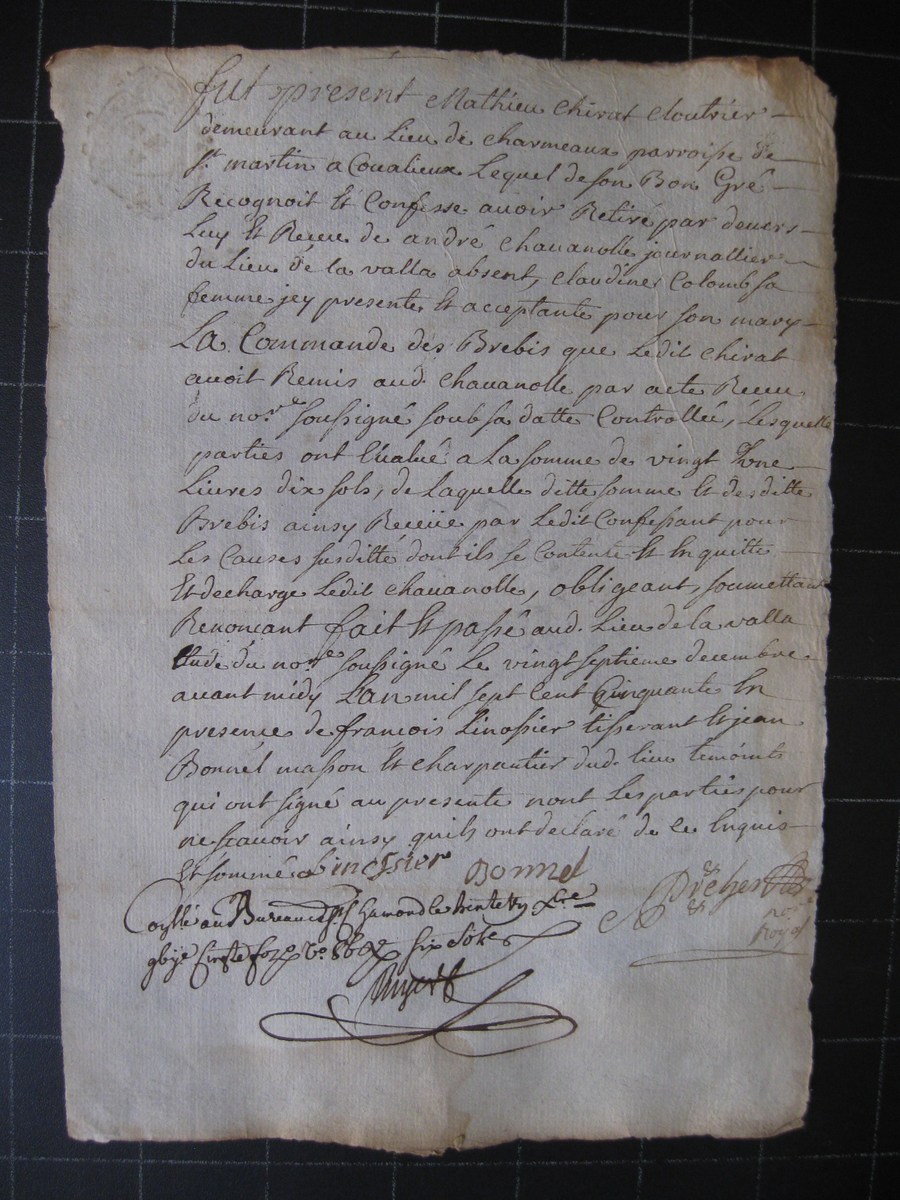 fut present Mathieu Chirat Cloutrier
demeurant au Lieu de Charmeaux parroisse de
st martin a Coualieux Lequel de son Bon Gré
Recognoit Et Confesse auoir Retiré par deuers
Luy Et Receu de andré Chauanolle journallier
du Lieu de la valla absent, Claudine Colomb sa
femme jcy presente Et acceptante pour son mary
La Commande des Brebis que Ledit Chirat
auoit Remis aud. Chauanolle par acte Receu
du nore soussigné soub sa datte Controllée, Lesquelle
parties ont Eualué a La somme de vingt Vne
Liures dix sols, de Laquelle ditte somme Et desditte
Brebis ainsy Receüe par Ledit Confessant pour
Les Causes susditte dont ils se Contente Et En quitte
Et decharge Ledit Chauanolle, obligeant, soumettant
Renoncant fait Et passé aud. Lieu de la valla
Etude du nore soussigné Le vingt septieme decembre
auant midy L'an mil sept Cent Cinquante En
presence de francois Linossier tisserant Et jean
Bonnel masson Et Charpantier dud. lieu temoints
qui ont signé au presente nont Les parties pour
ne scauoir ainsy quils ont declaré de ce Enquis
Et sommé Linossier
Bonnel
nore
Royal
au Bureau de st Chamond le trente Xbre
six sols